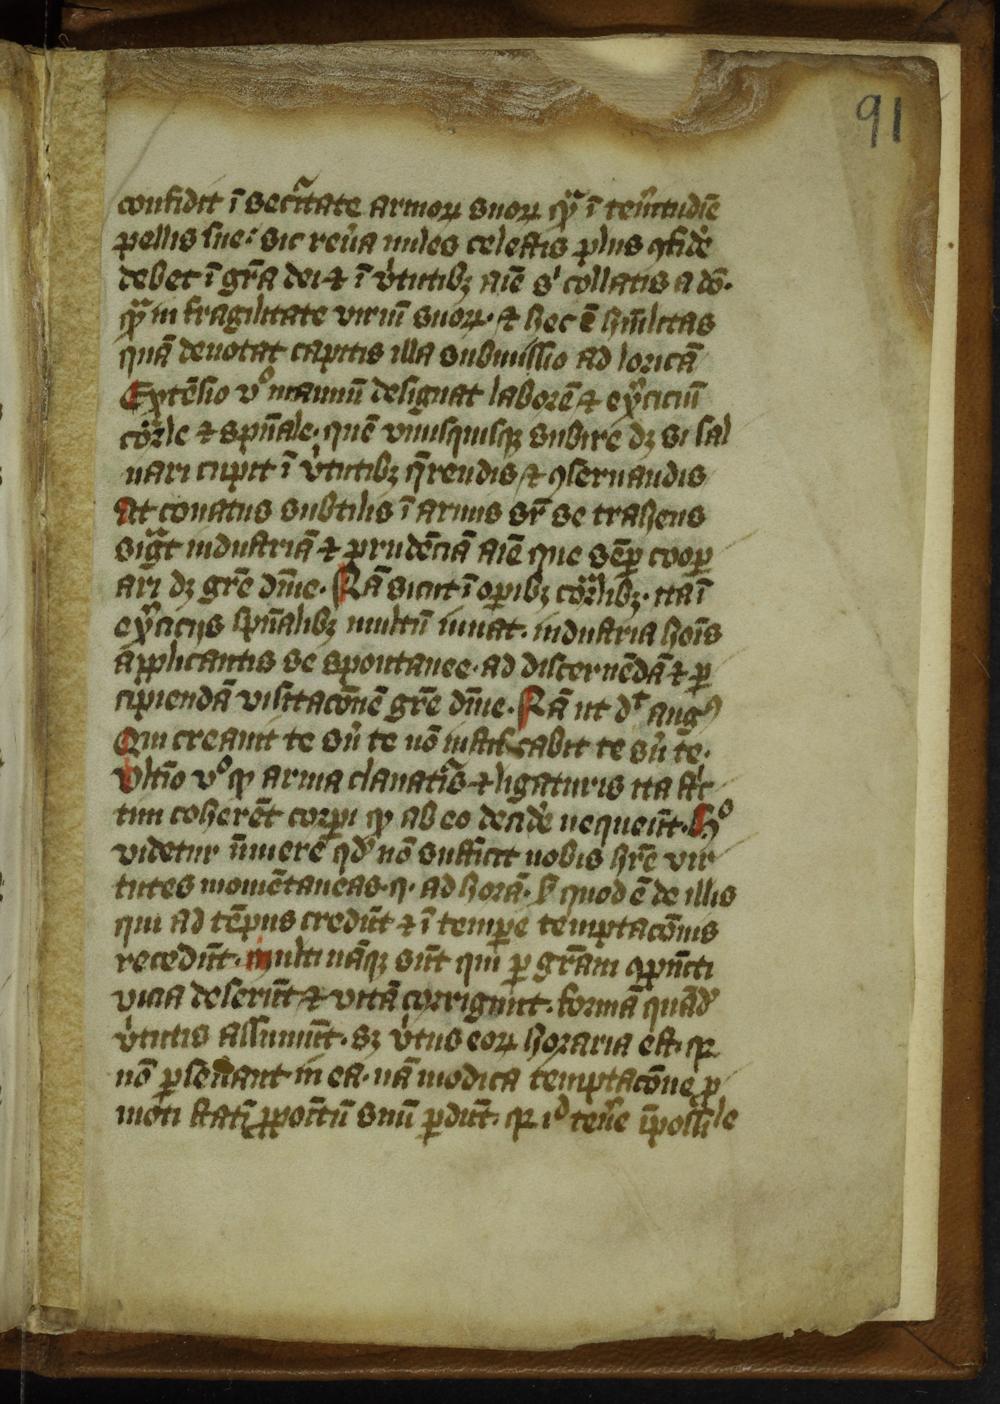 91
confidit ī sec̃itate armoꝝ suoꝝ qͣ̃ ī teñitudīe
pellis sue: sic reũa miles celestis plus ꝯfidẽ
debet ī grã dei ⁊ ī ṽtutibꝫ aīe sͥ collatis a dō.
qͣ̃ in fragilitate viriū suoꝝ. ⁊ hec ē hũilitas
quã denotat capitis illa submissio ad loricã
Extēsio vͦ manuū designat laborē ⁊ ex̃ciciū
cõrle ⁊ spũale. quē vnusquisqꝫ subire dꝫ si sal
uari cupit ī ṽtutibꝫ q̃rendis ⁊ ꝯseruandis
At conatus subtilis ī armis sr̃ se trahens
sigͣt industriã ⁊ prudēciã aīe que sēꝑ cooꝑ
ari dꝫ grẽ dīue. Nã sicut ī oꝑibꝫ cõrlibꝫ. ita ī
ex̃cicijs spũalibꝫ multū iuuat. industria hoīs
applicantis se spontanee. ad discernēdã ⁊ ꝑ
cipiendã visitacōnē grẽ dīue. Nã ut dͭ augꝰ
Qui creauit te sñ te nō iustificabit te sñ te.
Vltīo vͦ ꝙ arma clauatĩs ⁊ ligaturis ita sĩc
tim coherēt corpi ꝙ ab eo decidẽ nequeūt. hͦ
videtur īnuere qdͥ nō sufficit nobis hr̃e vir
tutes momētaneas. q. ad horã. sͥ quod ē de illis
qui ad tēpus credūt ⁊ ī tempe temptacōnis
recedūt. multi nãqꝫ sūt qui ꝑ grãm ꝯpūcti
vicia deserūt ⁊ vitã corrigunt. formã quãdͥ
ṽtutis assumūt. sꝫ ṽtus eoꝝ horaria est. qꝛ
nō ꝑseuerant in ea. nã modica temptacōne ꝓ
moti statī ꝓpoītū suū ꝑdūt. qꝛ iͩ tenẽ īpossĩle